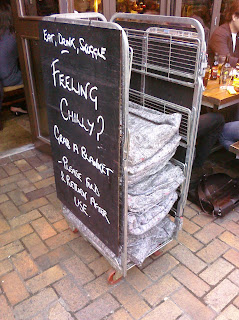 Eat, Drink, Snuggle
Feeling
Chilly?
Grab a Blanket
- Please Fold
& Return After
Use.